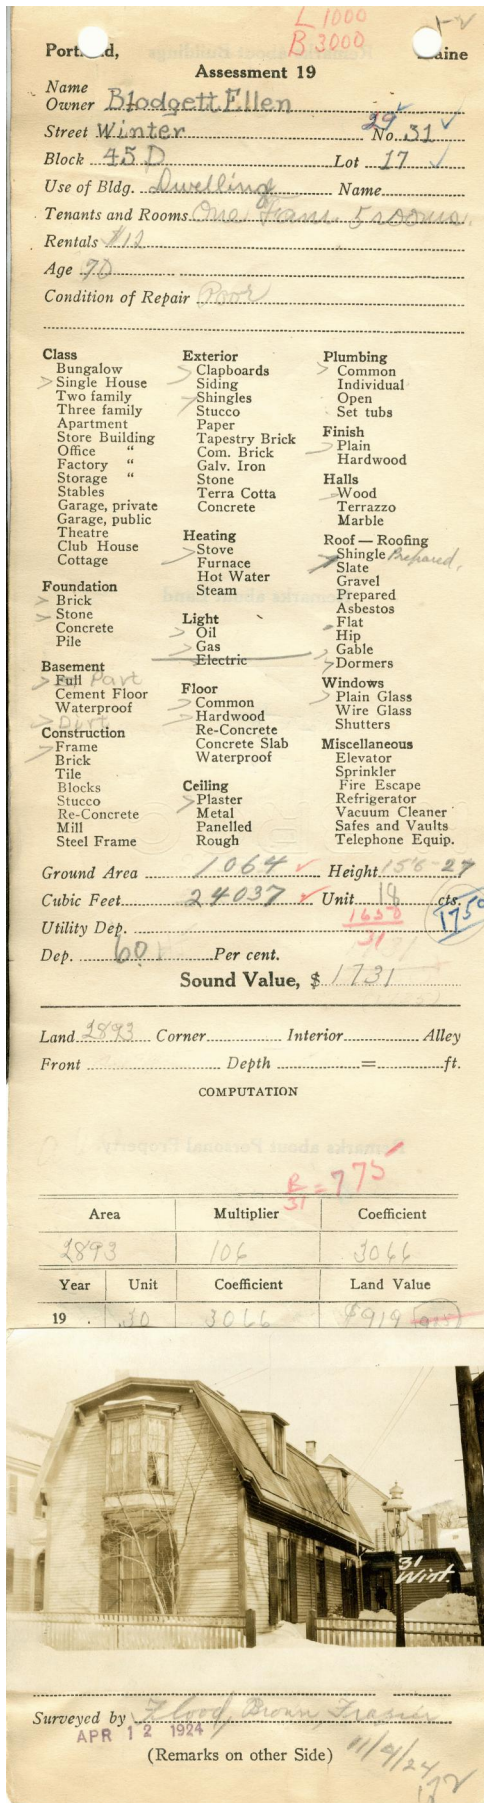 L 1000
B 3000
1-2
Portland, Maine
Assessment 19
Name
Owner Blodgett Ellen
Street Winter 29 No. 31
Block 45 D Lot 17
Use of Bldg. Dwelling Name
Tenants and Rooms One Fam. 5 rooms.
Rentals $12
Age 70
Condition of Repair Poor
Class
Bungalow
Single House
Two family
Three family
Apartment
Store Building
Office "
Factory "
Storage "
Stables
Garage, private
Garage, public
Theatre
Club House
Cottage
Foundation
Brick
Stone
Concrete
Pile
Basement
Full Part
Cement Floor
Waterproof
Dirt
Construction
Frame
Brick
Tile
Blocks
Stucco
Re-Concrete
Mill
Steel Frame
Exterior
Clapboards
Siding
Shingles
Stucco
Paper
Tapestry Brick
Com. Brick
Galv. Iron
Stone
Terra Cotta
Concrete
Heating
Stove
Furnace
Hot Water
Steam
Light
Oil
Gas
Electric
Floor
Common
Hardwood
Re-Concrete
Concrete Slab
Waterproof
Ceiling
Plaster
Metal
Panelled
Rough
Plumbing
Common
Individual
Open
Set tubs
Finish
Plain
Hardwood
Halls
Wood
Terrazzo
Marble
Roof — Roofing
Shingle Prepared.
Slate
Gravel
Prepared
Asbestos
Flat
Hip
Gable
Dormers
Windows
Plain Glass
Wire Glass
Shutters
Miscellaneous
Elevator
Sprinkler
Fire Escape
Refrigerator
Vacuum Cleaner
Safes and Vaults
Telephone Equip.
Ground Area 1064 Height 15'6-27
Cubic Feet 24037 Unit 18 cts.
1650
31
1750
Utility Dep.
Dep. 60 Per cent.
Sound Value, $ 1731
Land 2893 Corner Interior Alley
Front Depth = ft.
COMPUTATION
B
31 = 775
Area Multiplier Coefficient
2893 106 3066
Year Unit Coefficient Land Value
19 . .30 3066 $919
31
Wint.
Surveyed by Flood, Brown, Frazier
APR 12 1924
(Remarks on other Side)
11/9/24